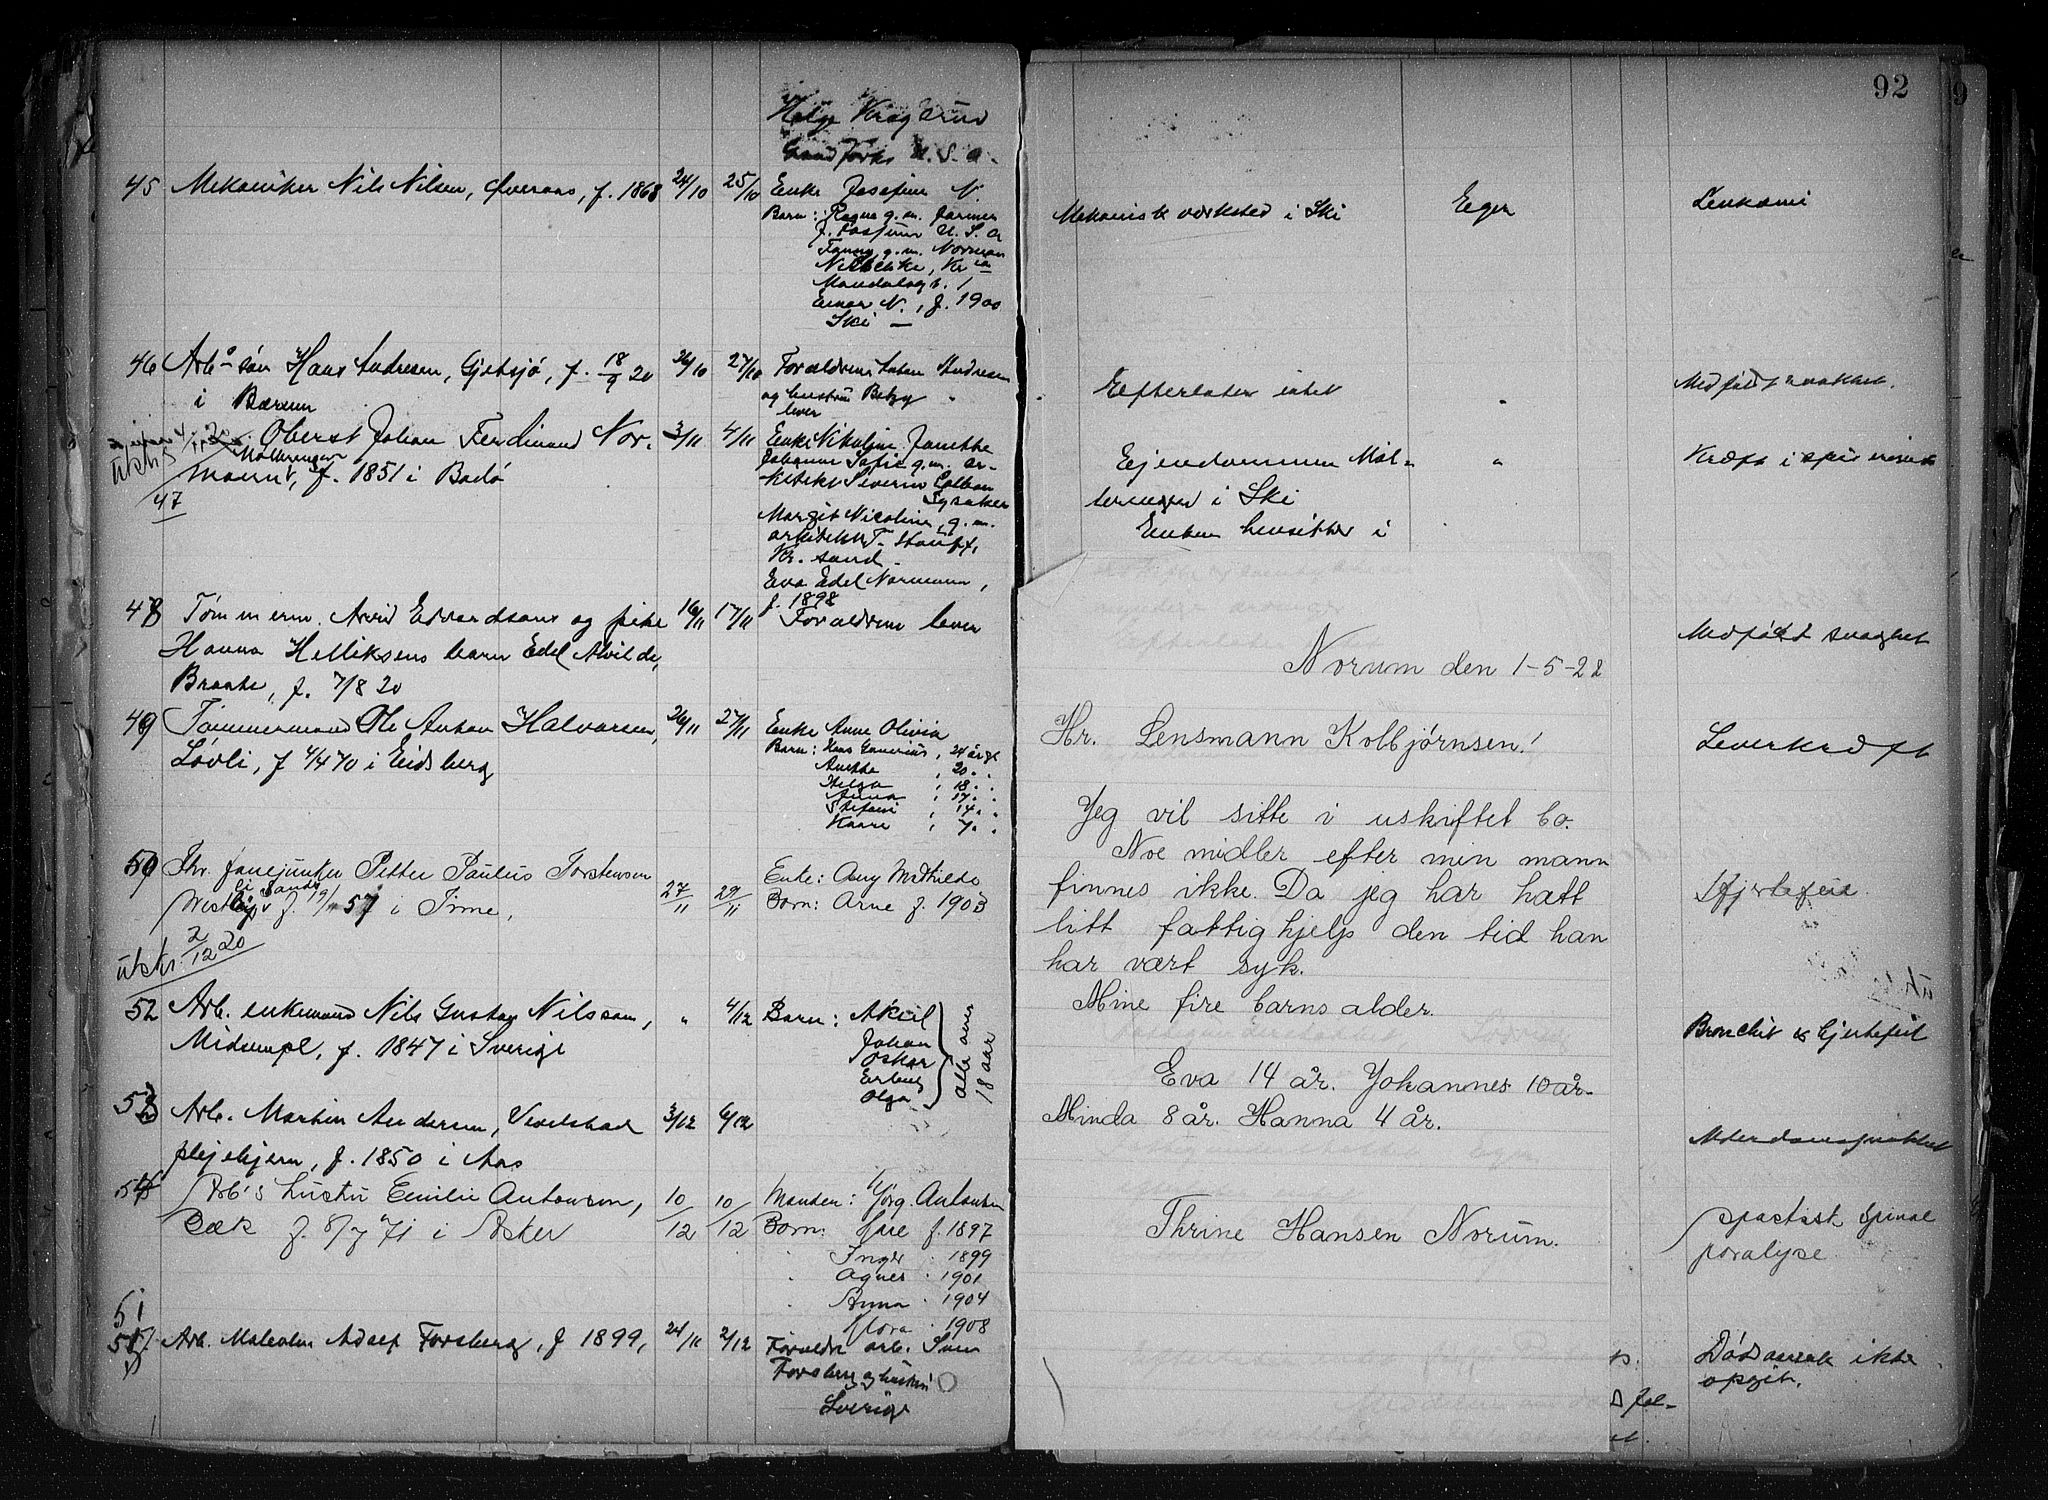 92
Helge Kragerud
Grand Forks U.S.A.
45 Mekaniker Nils Nilsen, f. 1868 24/10 25/10 Enke Josefine N.
Barn: Ragna g.m. farmer
U.S.A
Fanny g.m. Norman
Einar N., f. 1900
Ski —
Mekanisk værksted i Ski Eger Leukæmi
46 Arb.s søn Hans Andresen, Gjetsjø, f. 18/9 20 26/10 27/10 Forældrene Anton Andresen
i Bærum
og hustru Betzy
lever
Efterlater intet " Medfødt svakhet.
Oberst Johan Ferdinand Nor-
mann, f. 1851 i Bodø
47
3/11 4/11 Enke Nikoline Janethe
Johanne Sofie g.m. ar-
kitekt Severin
Lysaker
Margit Nicoline, g.m.
arkitekt T.
Kr.sand.
Eva Edel Normann,
f. 1898
Eiendommen Mol-
i Ski
Enken hensitter i
" Kræft i spiserøret
48 Tømmerm. Arvid Edvardsens og pike 16/11 17/11 Forældrene lever
Hanna Helliksens barn Edel Alvilde,
Braate, f. 7/8 20
Medfødt svaghet
49 Tømmermand Ole Anton Halvorsen, 26/11 27/11 Enke Anne Olivia
Løvli, f 4/4 70 i Eidsberg
Barn: Hans 24 år gl
Anette , 20 " "
Helga , 18 " "
Anna , 17 " "
Stefani , 14 " "
Kaare , 7 " "
Leverkræft
50 Fhv. fanejunker Petter Paulus Torstensen
f. 19/1 57 i Time,
27/11 29/11
Enke: Amy Mathilde
Barn: Arne f. 1903
Hjertefeil
utskr. 2/12 20
52 Arb. enkemand Nils Gustav Nilsson, " 4/12 Barn: Aksil
Midsempl, f. 1847 i Sverige
Johan
Oskar
Erling
Olga
alle over
18 aar
Bronchit & hjertefeil
53 Arb. Martin Andersen, Vevelstad 3/12 6/12
pleiehjem, f. 1850 i Aas
Alderdomssvakhet
54 Arb's hustru Emilie Antonsen, 10/12 10/12 Manden: Jørg. Antonsen
Bæk f. 8/7 71 i Asker
Barn: Kaare f. 1897
" Inger " 1899
" Agnes " 1901
" Anna " 1904
" Flora " 1908
Spastisk spinal
paralyse
51
Arb. Malcolm Adolf Forsberg, f 1899, 24/11 2/12 Forældre arb. Sven
Forsberg og hustru
Sverige
Dødsaarsak ikke
opgit.
Norum den 1-5-22
Hr. Lensmann Kolbjørnsen!
Jeg vil sitte i uskiftet bo.
Noe midler efter min mann
finnes ikke. Da jeg har hatt
litt fattighjelp den tid han
har vært syk.
Mine fire barns alder.
Eva 14 år. Johannes 10 år.
Minda 8 år. Hanna 4 år.
Thrine Hansen Norum.